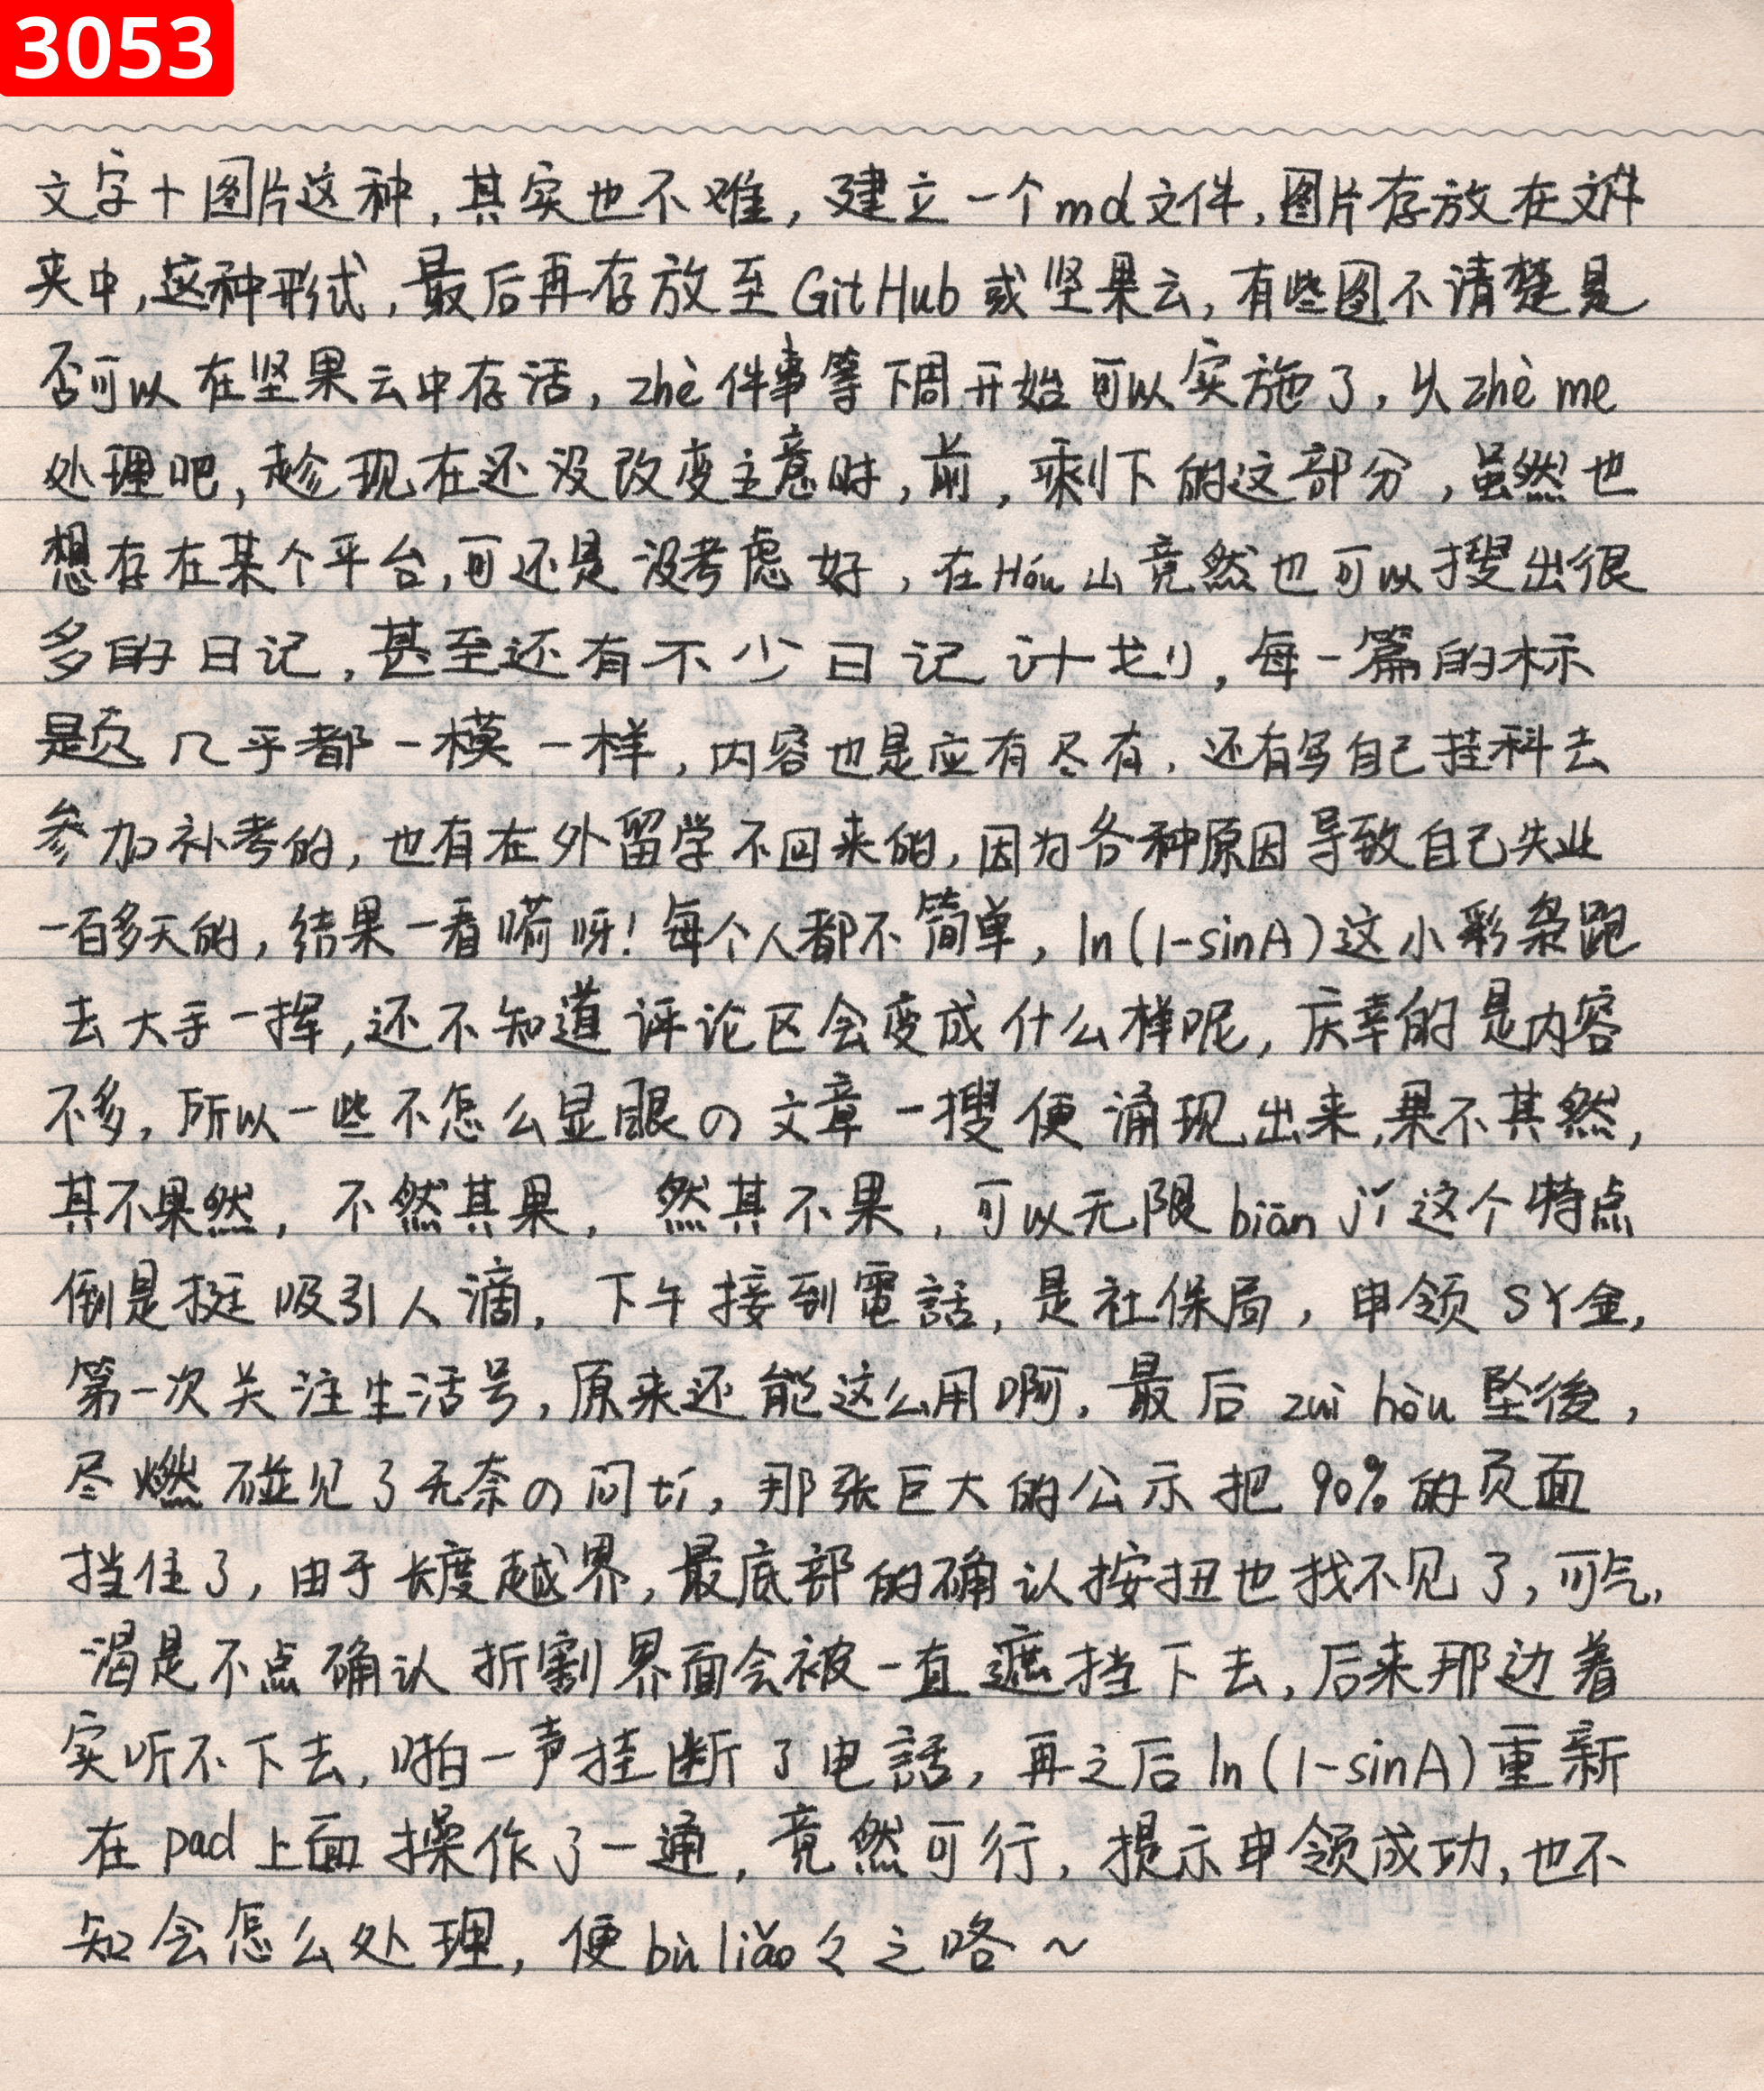 3053
文字+图片这种,其实也不难,建立一个md文件,图片存放在文件
夹中,这种形式,最后再存放至GitHub或坚果云,有些图不清楚是
否可以在坚果云中存活,zhè件事等下周开始可以实施了,从zhè me
处理吧,趁现在还没改变主意时,前,剩下的这部分,虽然也
想存在某个平台,可还是没考虑好,在Hóu山竟然也可以搜出很
多的日记,甚至还有不少日记计划,每一篇的标
题几乎都一模一样,内容也是应有尽有,还有写自己挂科去
参加补考的,也有在外留学不回来的,因为各种原因导致自己失业
一百多天的,结果一看嗬呀!每个人都不简单,ln(1-sinA)这小彩条跑
去大手一挥,还不知道评论区会变成什么样呢,庆幸的是内容
不多,所以一些不怎么显眼の文章一搜便涌现出来,果不其然,
其不果然,不然其果,然其不果,可以无限biān 这个特点
倒是挺吸引人滴,下午接到電話,是社保局,申领SY金,
第一次关注生活号,原来还能这么用啊,最后zuì hòu坠後,
尽燃碰见了无奈の问,那张巨大的公示把90%的页面
挡住了,由于长度越界,最底部的确认按扭也找不见了,可气,
渴是不点确认折割界面会被一直遮挡下去,后来那边着
实听不下去,啪一声挂断了电話,再之后ln(1-sinA)重新
在pad上面操作了一通,竟然可行,提示申领成功,也不
知会怎么处理,便bù liǎo々之咯~